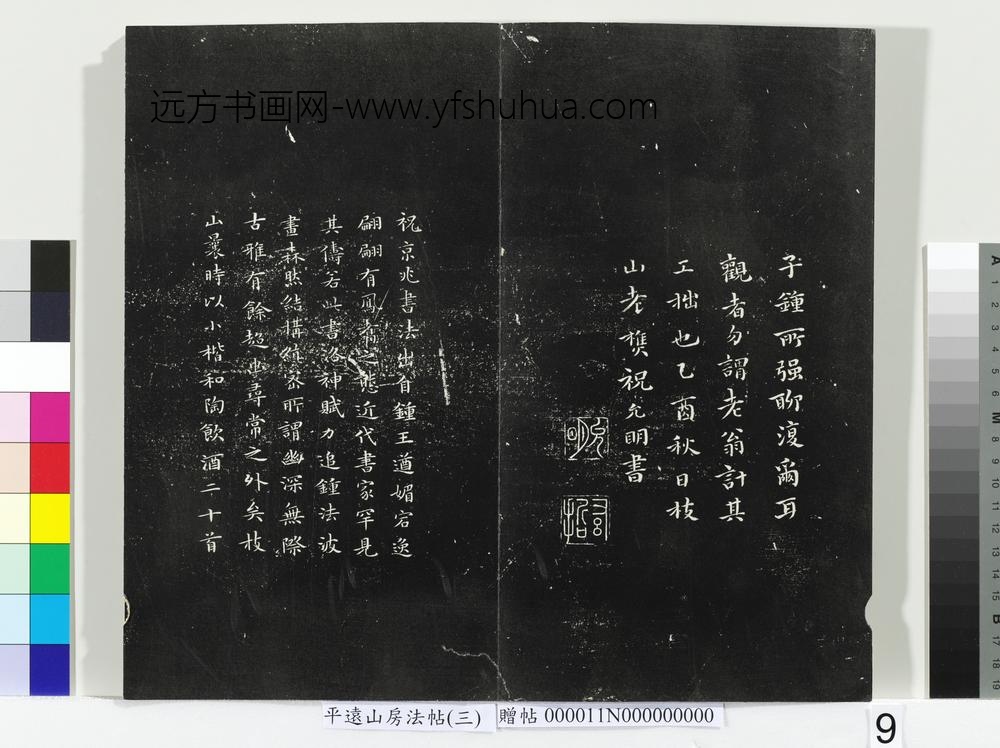 远方书画网-www.yfshuhua.com
子鍾所强聊復爾耳
觀者勿謂老翁計其
工拙也乙酉秋日枝
山老樵祝允明書
允明
祝京兆書法出自鍾王遒媚宕逸
翩翩有鳳翥之態近代書家罕見
其儔若此書洛神賦力追鍾法波
畫森然結構縝密所謂幽深無際
古雅有餘超出尋常之外矣枝
山曩時以小楷和陶飲酒二十首
平遠山房法帖(三)
贈帖 000011N000000000
9
A 1 2 3 4 5 6 M 8 9 10 11 12 13 14 15 B 17 18 19